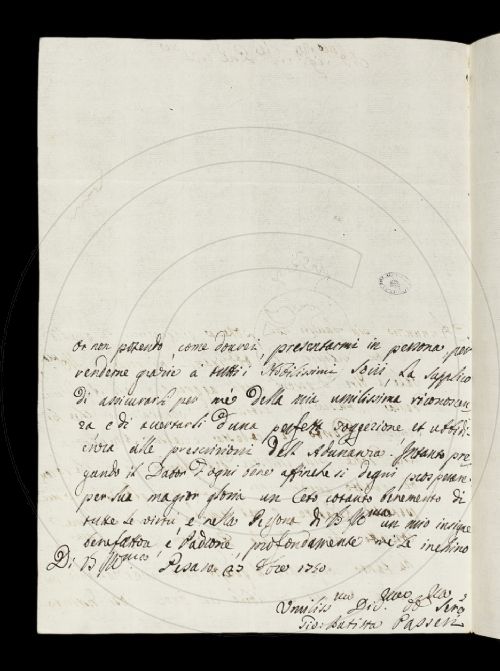 Or non potendo, come dourei, presentarmi in persona per
renderne grazie à tutti i Nobilissimi Socij La supplico
di assicurarli per mè della mia umilissima riconoscen
za e di accertarli d'una perfetta soggezione et ubbidi
enza alle prescrizioni dell'Adunanza. Intanto pre
gando il Dator d'ogni bene affinche si degni prosperare
per sua magior gloria un Ceto cotanto benemerito di
tutte le virtù e nella Persona di un mio insigne
benefattor e Padrone, profondamente me Le inchino
Di Pesaro 1750
Umiliss Passeri
Gio: Batista